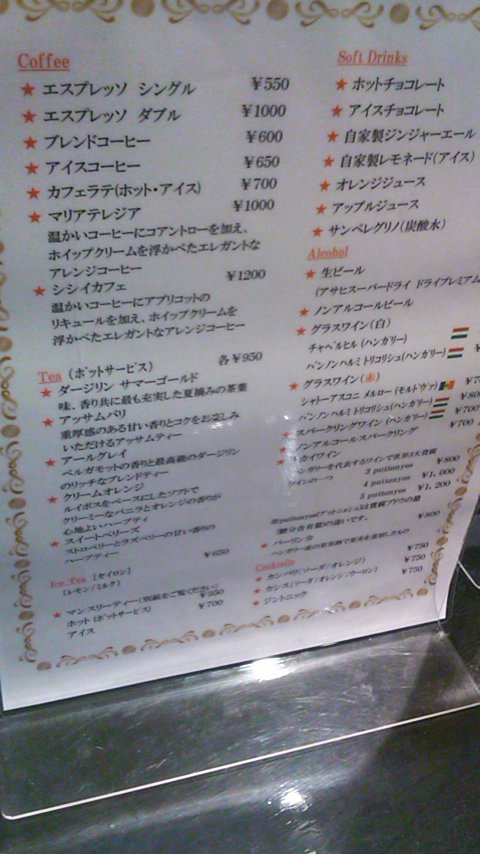 Coffee
★ エスプレッソ シングル ￥550
★ エスプレッソ ダブル ￥1000
★ ブレンドコーヒー ￥600
★ アイスコーヒー ￥650
★ カフェラテ(ホット・アイス) ￥700
★ マリアテレジア ￥1000
温かいコーヒーにコアントローを加え、
ホイップクリームを浮かべたエレガントな
アレンジコーヒー
★ シシイカフェ ￥1200
温かいコーヒーにアプリコットの
リキュールを加え、ホイップクリームを
浮かべたエレガントなアレンジコーヒー
Tea (ポットサービス) 各￥950
★ ダージリン サマーゴールド
味、香り共に最も充実した夏摘みの茶葉
★ アッサムバリ
重厚感のある甘い香りとコクをお楽しみ
いただけるアッサムティー
★ アールグレイ
ベルガモットの香りと最高級のダージリン
のリッチなブレンドティー
★ クリームオレンジ
ルイボスをベースにしたソフトで
クリーミーなバニラとオレンジの香りが
心地よいハーブティ
★ スイートベリーズ
ストロベリーとラズベリーの甘い香りの
ハーブティー
Ice Tea [セイロン] ￥650
(レモン/ミルク)
★ マンスリーティー(別紙をご覧ください)
ホット (ポットサービス) ￥950
アイス ￥700
Soft Drinks
★ ホットチョコレート
★ アイスチョコレート
★ 自家製ジンジャーエール
★ 自家製レモネード(アイス)
★ オレンジジュース
★ アップルジュース
★ サンペレグリノ(炭酸水)
Alcohol
★ 生ビール
(アサヒスーパードライ ドライプレミアム
★ ノンアルコールビール
★ グラスワイン(白)
チャペルヒル(ハンガリー)
パンノンハルミ トリコリシュ(ハンガリー)
★ グラスワイン(赤)
シャトーアスコニ メルロー (モルドヴァ)
パンノンハルミ トリコリシュ(ハンガリー)
★ スパークリングワイン (ハンガリー) ￥700
★ ノンアルコールスパークリング ￥700
★ トカイワイン
ハンガリーを代表するワインで世界3大貴腐
ワインの一つ 3 puttonyos ￥800
4 puttonyos ￥1，000
5 puttonyos ￥1，200
※puttonyos(プットニョシュ)は貴腐ブドウの量
(糖分含有量)の違いです。
★ パーリンカ ￥800
ハンガリー産の果実酒で果実を蒸留したもの
Cocktails
★ カンパリ(ソーダ/オレンジ) ￥750
★ カシス(ソーダ/オレンジ/ウーロン) ￥750
★ ジントニック ￥750